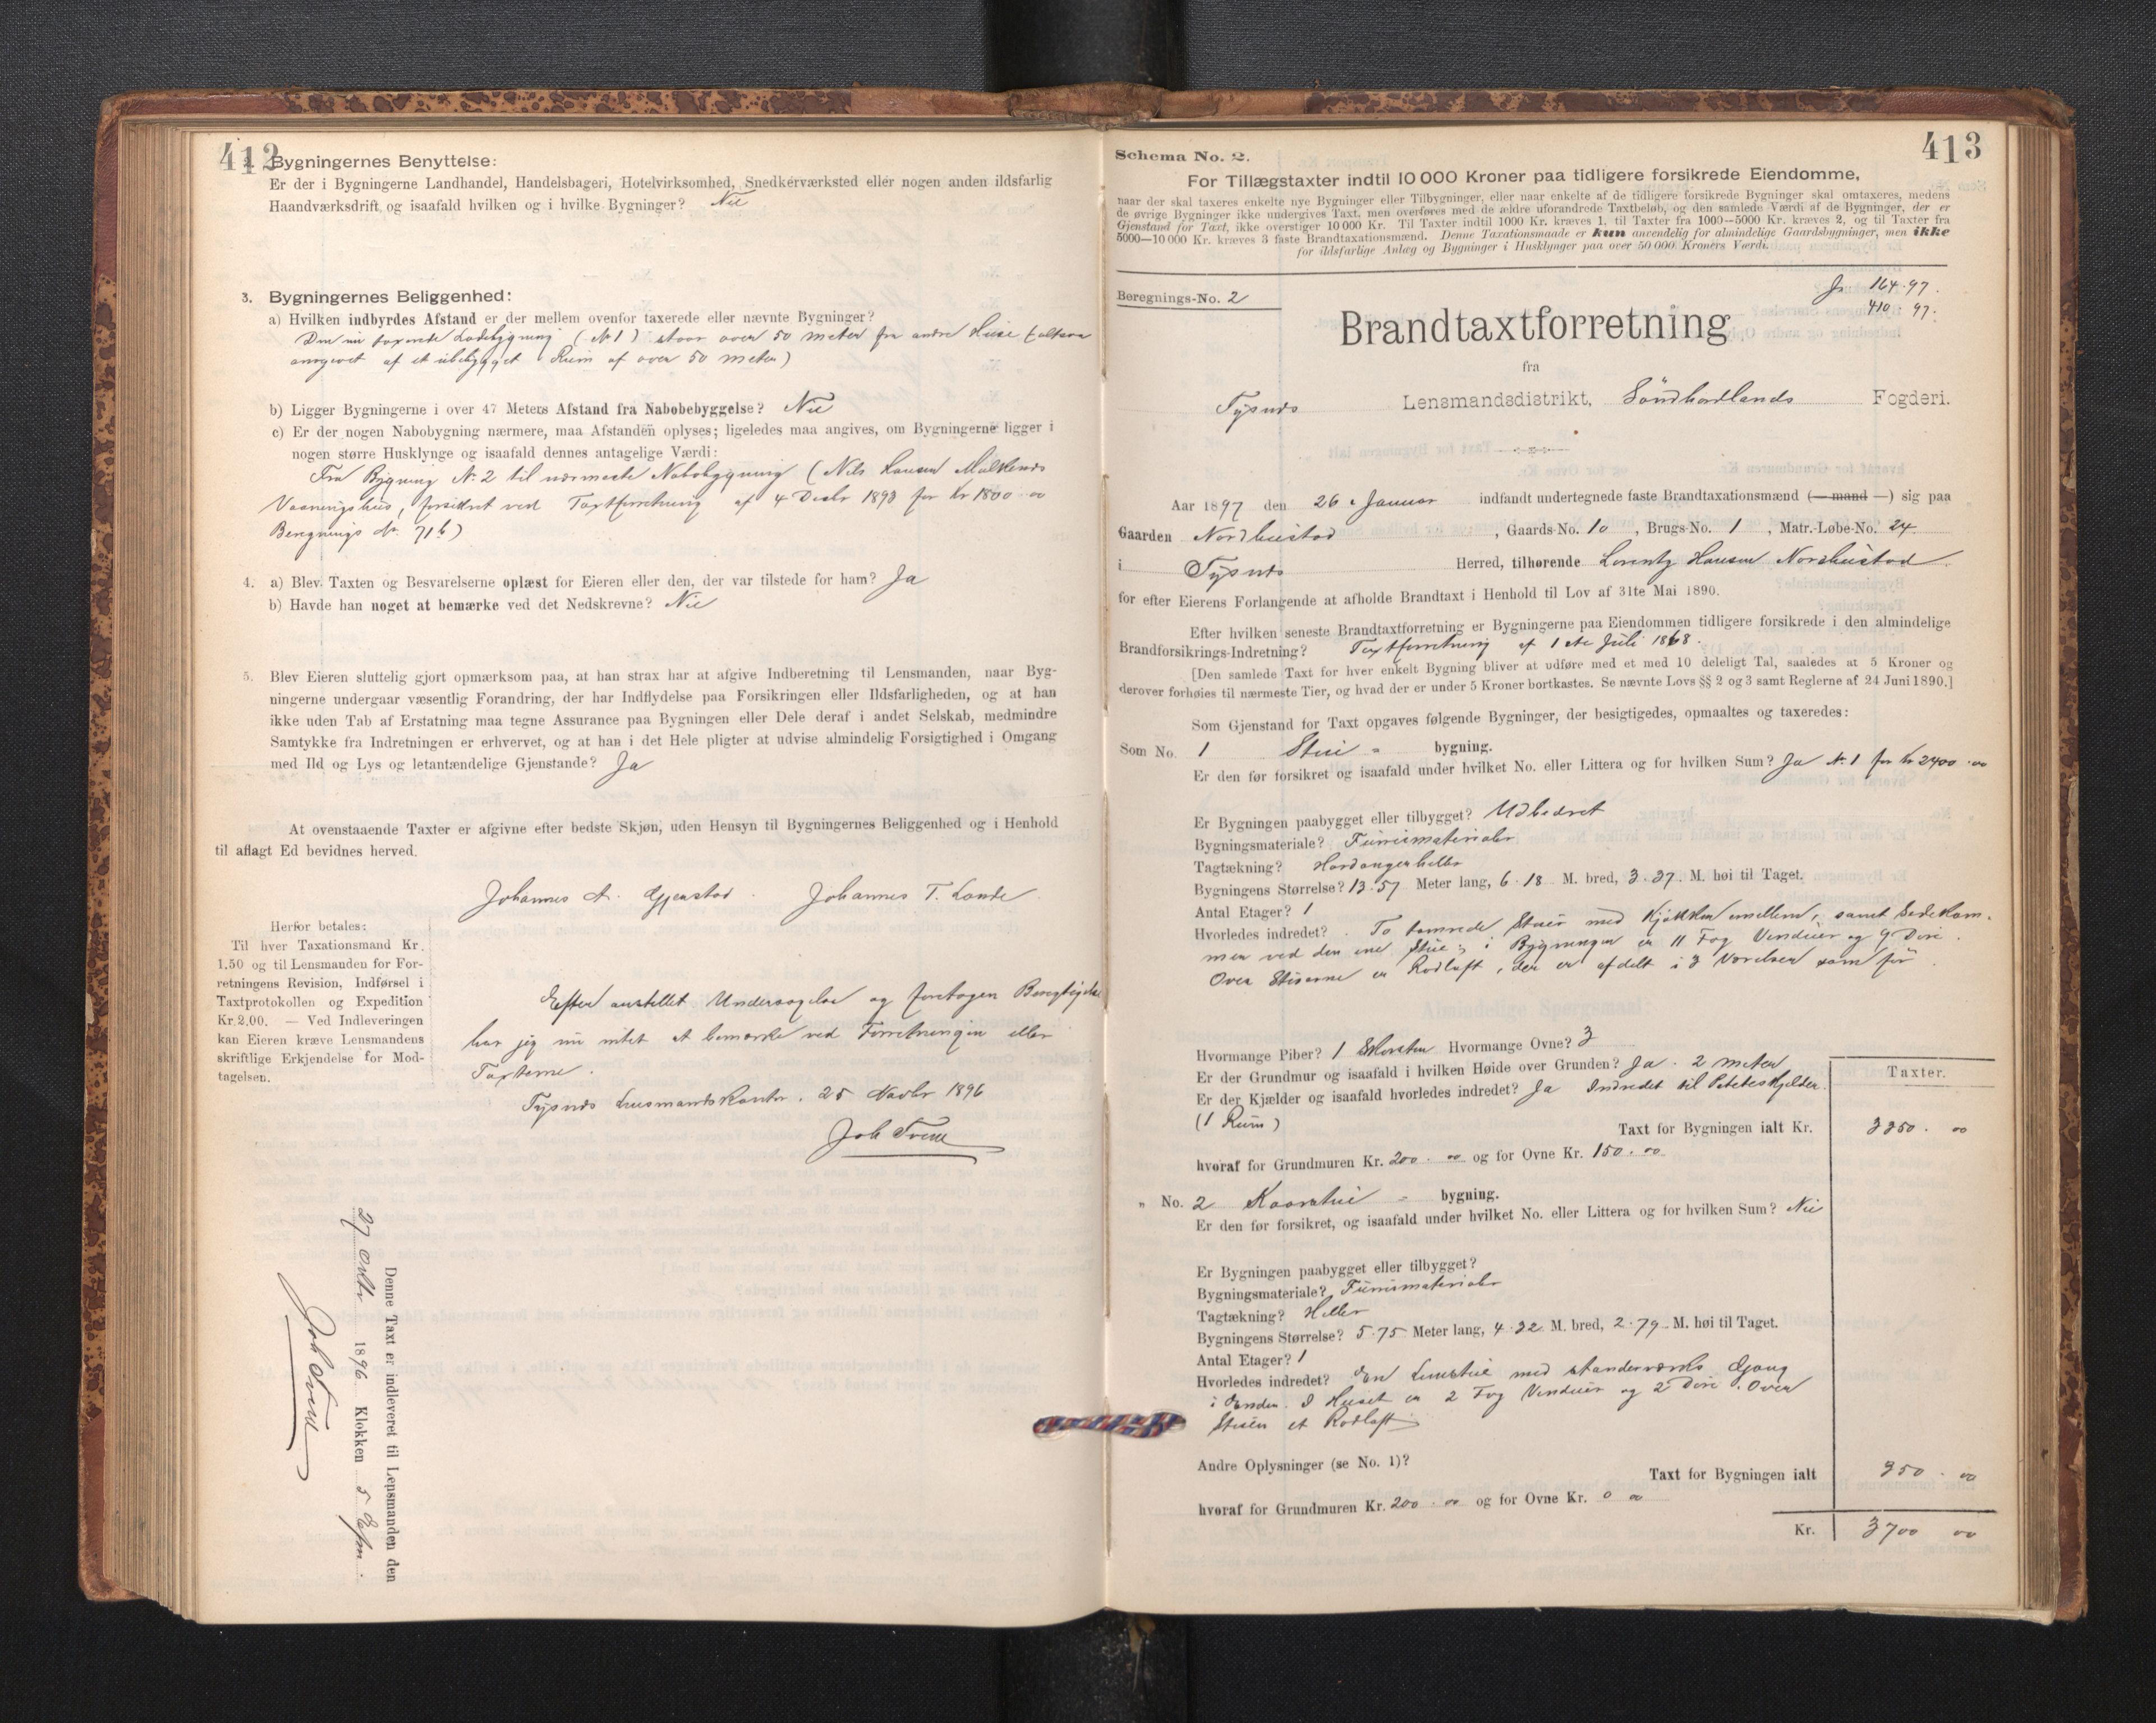 412
2. Bygningernes Benyttelse:
Er der i Bygningerne Landhandel, Handelsbageri, Hotelvirksomhed, Snedkerværksted eller nogen anden ildsfarlig
Haandværksdrift og isaafald hvilken og i hvilke Bygninger? Nei
3. Bygningernes Beliggenhed:
a) Hvilken indbyrdes Afstand er der mellem ovenfor taxerede eller nævnte Bygninger?
Den nu taxerede Ladebygning (No 1) staar over 50 meter fra andre Huse (altsaa
omgivet af et ubebygget Rum af over 50 meter)
b) Ligger Bygningerne i over 47 Meters Afstand fra Nabobebyggelse? Nei
c) Er der nogen Nabobygning nærmere, maa Afstanden oplyses; ligeledes maa angives, om Bygningerne ligger i
nogen større Husklynge og isaafald dennes antagelige Værdi:
Fra Bygning No 2 til nærmeste Nabobygning (Nils Hansen
Vaaningshus, forsikret ved Taxtforretning af 4 Decbr 1893 for Kr 1800 00
Beregnings No. 71b)
4. a) Blev Taxten og Besvarelserne oplæst for Eieren eller den, der var tilstede for ham? Ja
b) Havde han noget at bemærke ved det Nedskrevne? Nei
5. Blev Eieren sluttelig gjort opmærksom paa, at han strax har at afgive Indberetning til Lensmanden, naar Byg-
ningerne undergaar væsentlig Forandring, der har Indflydelse paa Forsikringen eller Ildsfarligheden, og at han
ikke uden Tab af Erstatning maa tegne Assurance paa Bygningen eller Dele deraf i andet Selskab, medmindre
Samtykke fra Indretningen er erhvervet, og at han i det Hele pligter at udvise almindelig Forsigtighed i Omgang
med Ild og Lys og letantændelige Gjenstande? Ja
At ovenstaaende Taxter er afgivne efter bedste Skjøn, uden Hensyn til Bygningernes Beliggenhed og i Henhold
til aflagt Ed bevidnes herved.
Johannes A. Gjerstad. Johannes T. Lande.
Herfor betales:
Til hver Taxationsmand Kr.
1.50 og til Lensmanden for For-
retningens Revision, Indførsel i
Taxtprotokollen og Expedition
Kr. 2.00. — Ved Indleveringen
kan Eieren kræve Lensmandens
skriftlige Erkjendelse for Mod-
tagelsen.
Efter anstillet Undersøgelse og foretagen Besigtigelse
har jeg nu intet at bemærke ved Forretningen eller
Taxterne.
Tysnes Lensmandskontor. 25 Novbr 1896
Denne Taxt er indleveret til Lensmanden den
27 Octbr 1896 Klokken 5 Efm.
413
Schema No. 2.
For Tillægstaxter indtil 10 000 Kroner paa tidligere forsikrede Eiendomme,
naar der skal taxeres enkelte nye Bygninger eller Tilbygninger, eller naar enkelte af de tidligere forsikrede Bygninger skal omtaxeres, medens
de øvrige Bygninger ikke undergives Taxt, men overføres med de ældre uforandrede Taxtbeløb, og den samlede Værdi af de Bygninger, der er
Gjenstand for Taxt, ikke overstiger 10 000 Kr. Til Taxter indtil 1000 Kr. kræves 1, til Taxter fra 1000—5000 Kr. kræves 2, og til Taxter fra
5000—10 000 Kr. kræves 3 faste Brandtaxationsmænd. Denne Taxationsmaade er kun anvendelig for almindelige Gaardsbygninger, men ikke
for ildsfarlige Anlæg og Bygninger i Husklynger paa over 50 000 Kroners Værdi.
Beregnings-No. 2
Jr. 164.97.
410.97.
Brandtaxtforretning
fra
Tysnes Lensmandsdistrikt, Söndhordlands Fogderi.
Aar 1897 den 26 Januar indfandt undertegnede faste Brandtaxationsmænd (— mand —) sig paa
Gaarden Nordhustad, Gaards-No. 10, Brugs-No. 1, Matr.-Løbe-No. 24
i Tysnes Herred, tilhørende Lorentz Hansen Nordhustad
for efter Eierens Forlangende at afholde Brandtaxt i Henhold til Lov af 31te Mai 1890.
Efter hvilken seneste Brandtaxtforretning er Bygningerne paa Eiendommen tidligere forsikrede i den almindelige
Brandforsikrings-Indretning? Taxtforretning af 1ste Juli 1868.
[Den samlede Taxt for hver enkelt Bygning bliver at udføre med et med 10 deleligt Tal, saaledes at 5 Kroner og
derover forhøies til nærmeste Tier, og hvad der er under 5 Kroner bortkastes. Se nævnte Lovs §§ 2 og 3 samt Reglerne af 24 Juni 1890.]
Som Gjenstand for Taxt opgaves følgende Bygninger, der besigtigedes, opmaaltes og taxeredes:
Som No. 1 Stue - bygning.
Er den før forsikret og isaafald under hvilket No. eller Littera og for hvilken Sum? Ja No 1 for Kr 2400.00
Er Bygningen paabygget eller tilbygget? Udbedret
Bygningsmateriale? Furumaterialer
Tagtækning? Hardangerheller
Bygningens Størrelse? 13.57 Meter lang, 6.18 M. bred, 3.37. M. høi til Taget.
Antal Etager? 1
Hvorledes indredet? To tømrede Stuer med Kjøkken imellem, samt Sidekam-
mer ved den ene Stue; i Bygningen er 11 Fag Vinduer og 9 Döre.
Over Stuerne er Rodloft, der er afdelt i 3 Værelser som för
Hvormange Piber? 1 Skorsten Hvormange Ovne? 3
Er der Grundmur og isaafald i hvilken Høide over Grunden? Ja. 2 meter
Er der Kjælder og isaafald hvorledes indredet? Ja Indredet til Potetkjelder.
(1 Rum)
Taxter.
Taxt for Bygningen ialt Kr. 3350. 00
hvoraf for Grundmuren Kr. 200. 00 og for Ovne Kr. 150.00
" No. 2 Kaarstue - bygning.
Er den før forsikret, og isaafald under hvilket No. eller Littera og for hvilken Sum? Nei
Er Bygningen paabygget eller tilbygget?
Bygningsmateriale? Furumaterialer
Tagtækning? Heller
Bygningens Størrelse? 5.75 Meter lang, 4.32 M. bred, 2.79 M. høi til Taget.
Antal Etager? 1
Hvorledes indredet? En med standerværks Gang
i Enden. I Huset er 2 Fag Vinduer og 2 Döre. Over
Stuen et Rodloft
Andre Oplysninger (se No. 1)?
Taxt for Bygningen ialt 350. 00
hvoraf for Grundmuren Kr. 200. 00 og for Ovne Kr. 0 00
Kr. 3700 00